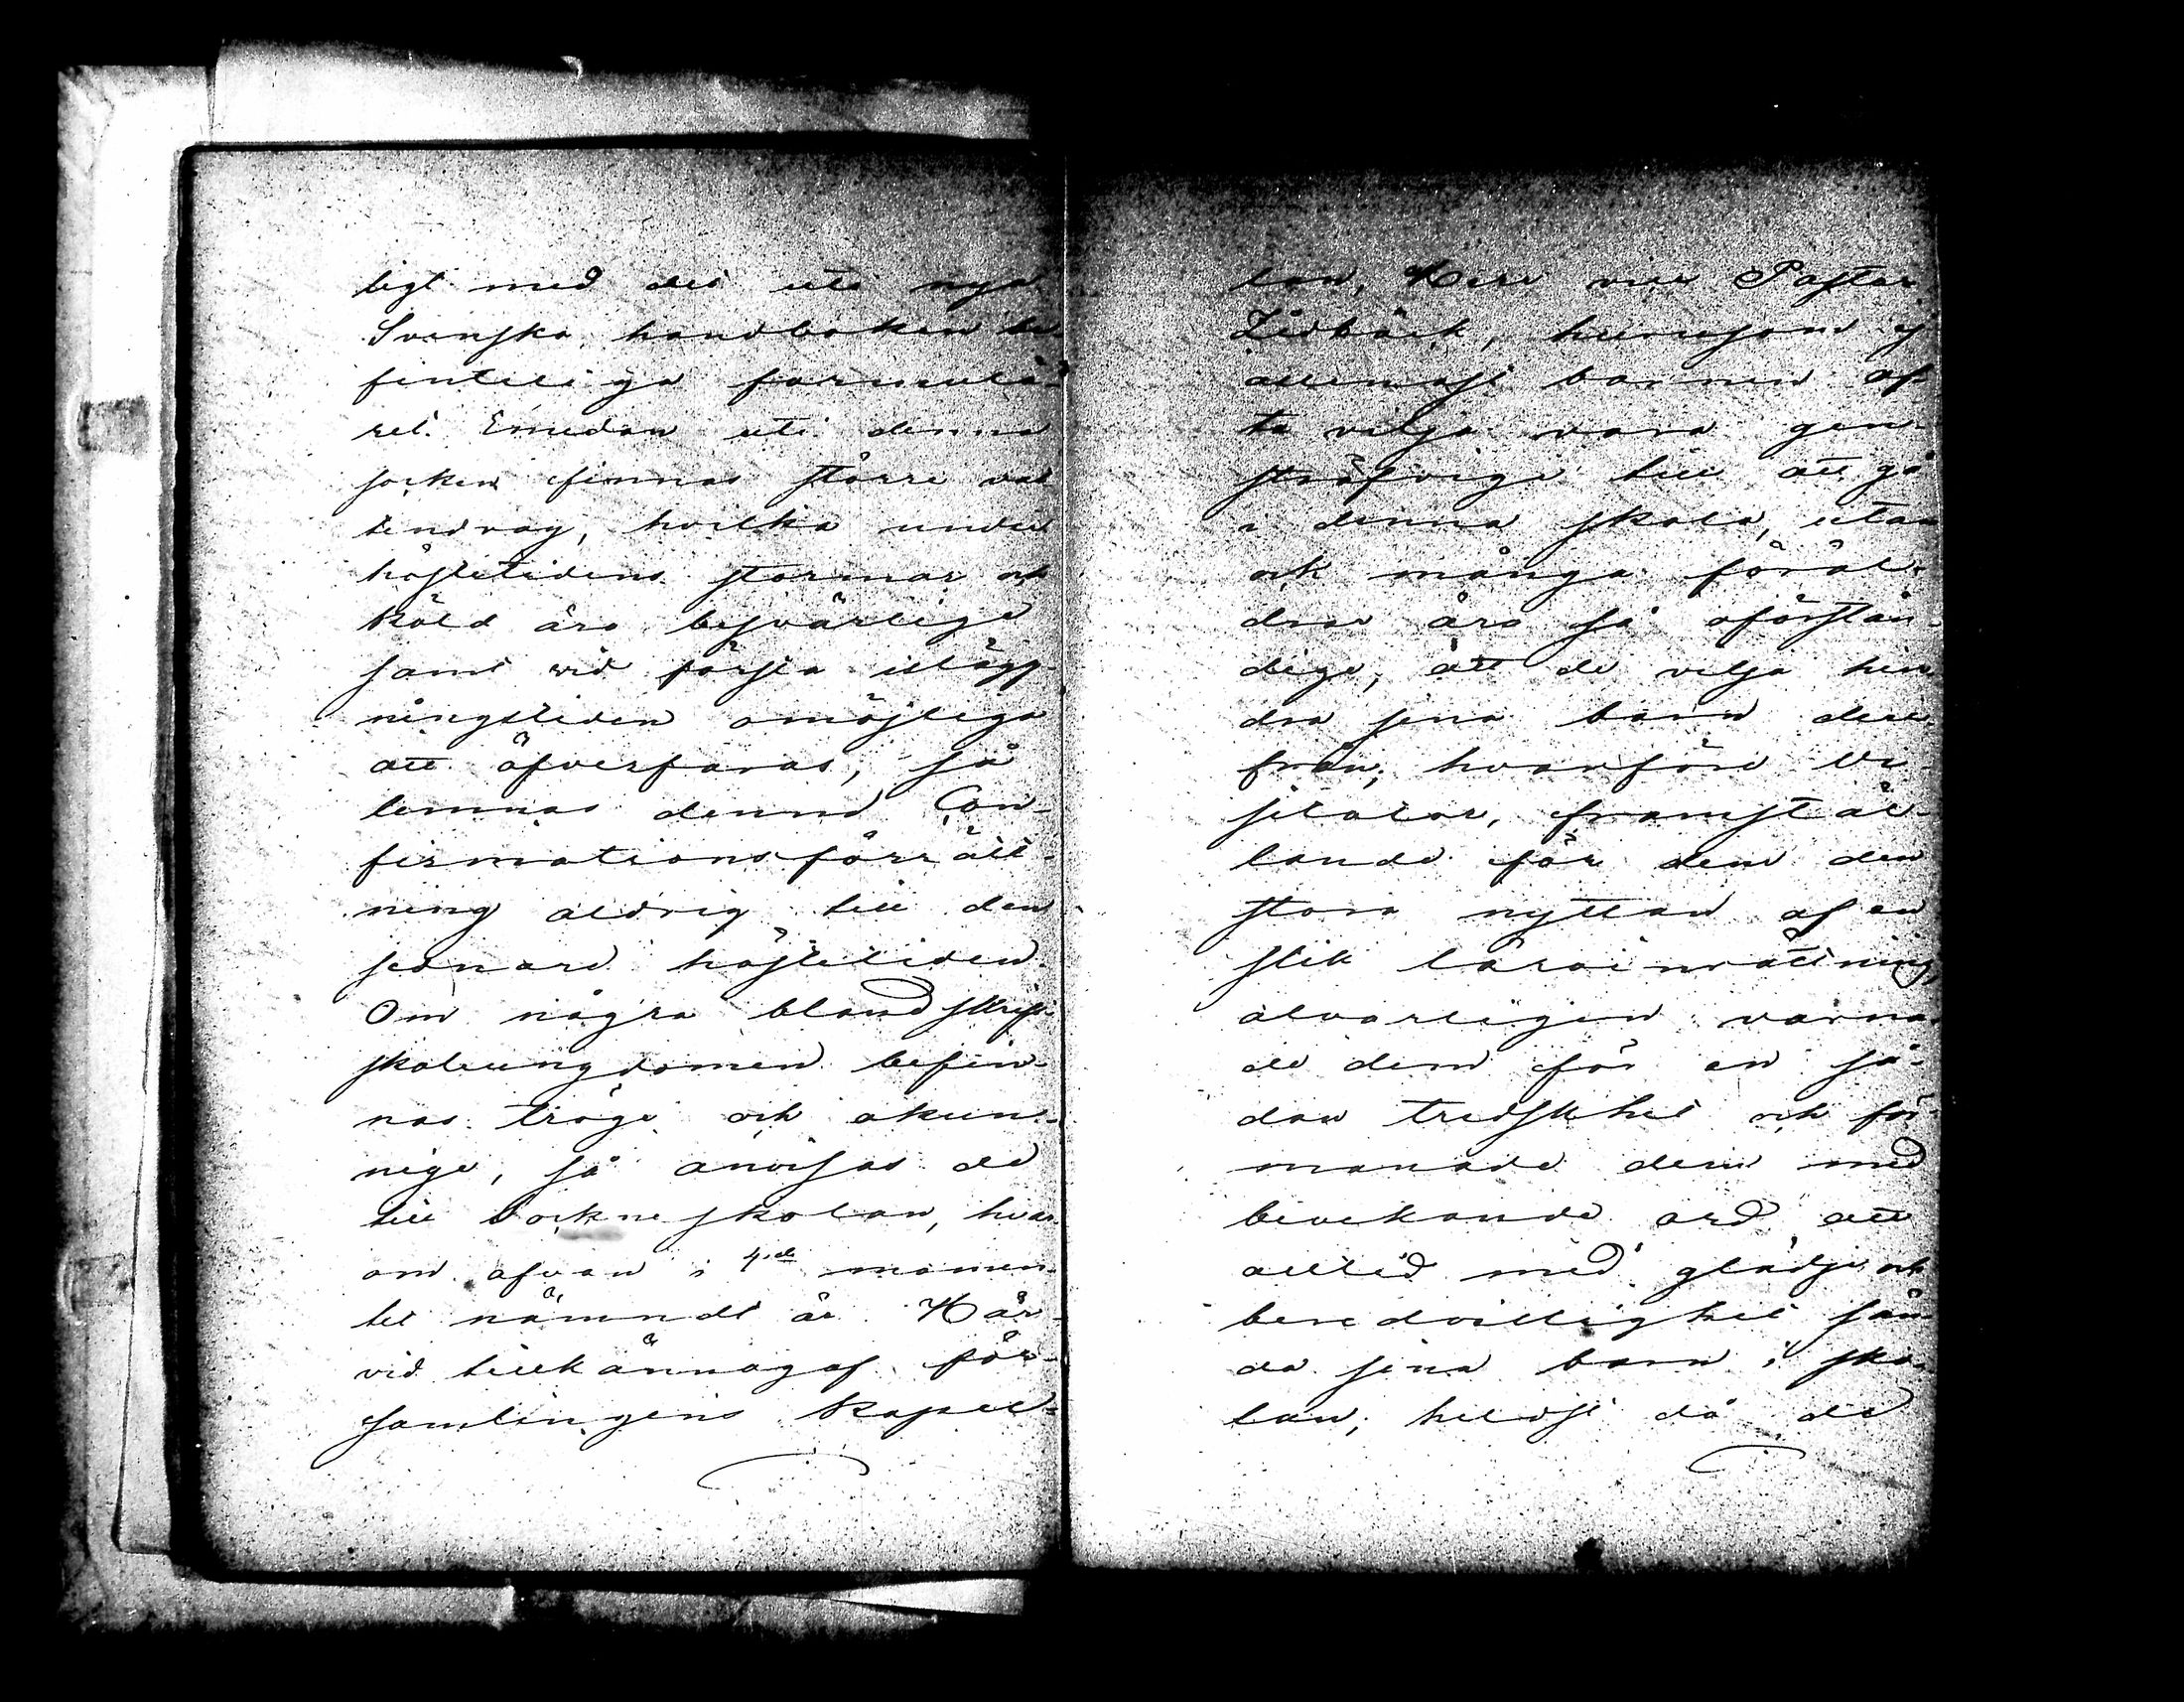 ligt med det uti nya
Svenska handboken be-
finteliga formulä-
ret. Emedan uti denna
socken finnas större vat
tendrag, hvilka under
höstetidens stormar och
köld äro besvärliga
samt wid första isläg-
ningstiden omöjliga
att öfverfaras, så
lemnas denna Con-
firmationsförrätt-
ning aldrig till den
sednare höstetiden.
Om några bland skrift-
skoleungdomen befin-
nas tröge och okun-
nige, så anvisas de
till Sockneskolan, hvar-
om ofvan i 4.de momen-
tet nämndt är. Här-
vid tillkännagaf för-
samlingens Kapel-
lan, Herr vice Pastor
Lidbäck, huruson ej
allenast barnen of-
ta vilja vara gen-
sträfvige till att gå
i denna skola, utan
ock många föräl-
drar äro så oförstån-
dige, att de vilja hin
dra sina barn der-
från; hvarföre Vi-
sitator, framstäl-
lande för dem den
stora nyttan af en
slik läroinrättning,
alvarligen varna-
de dem för en så-
dan tredskhet och för-
manade dem med
bevekande ord att
alltid med glädje och
beredvillighet sän-
da sina barn i sko-
lan, heldst då de